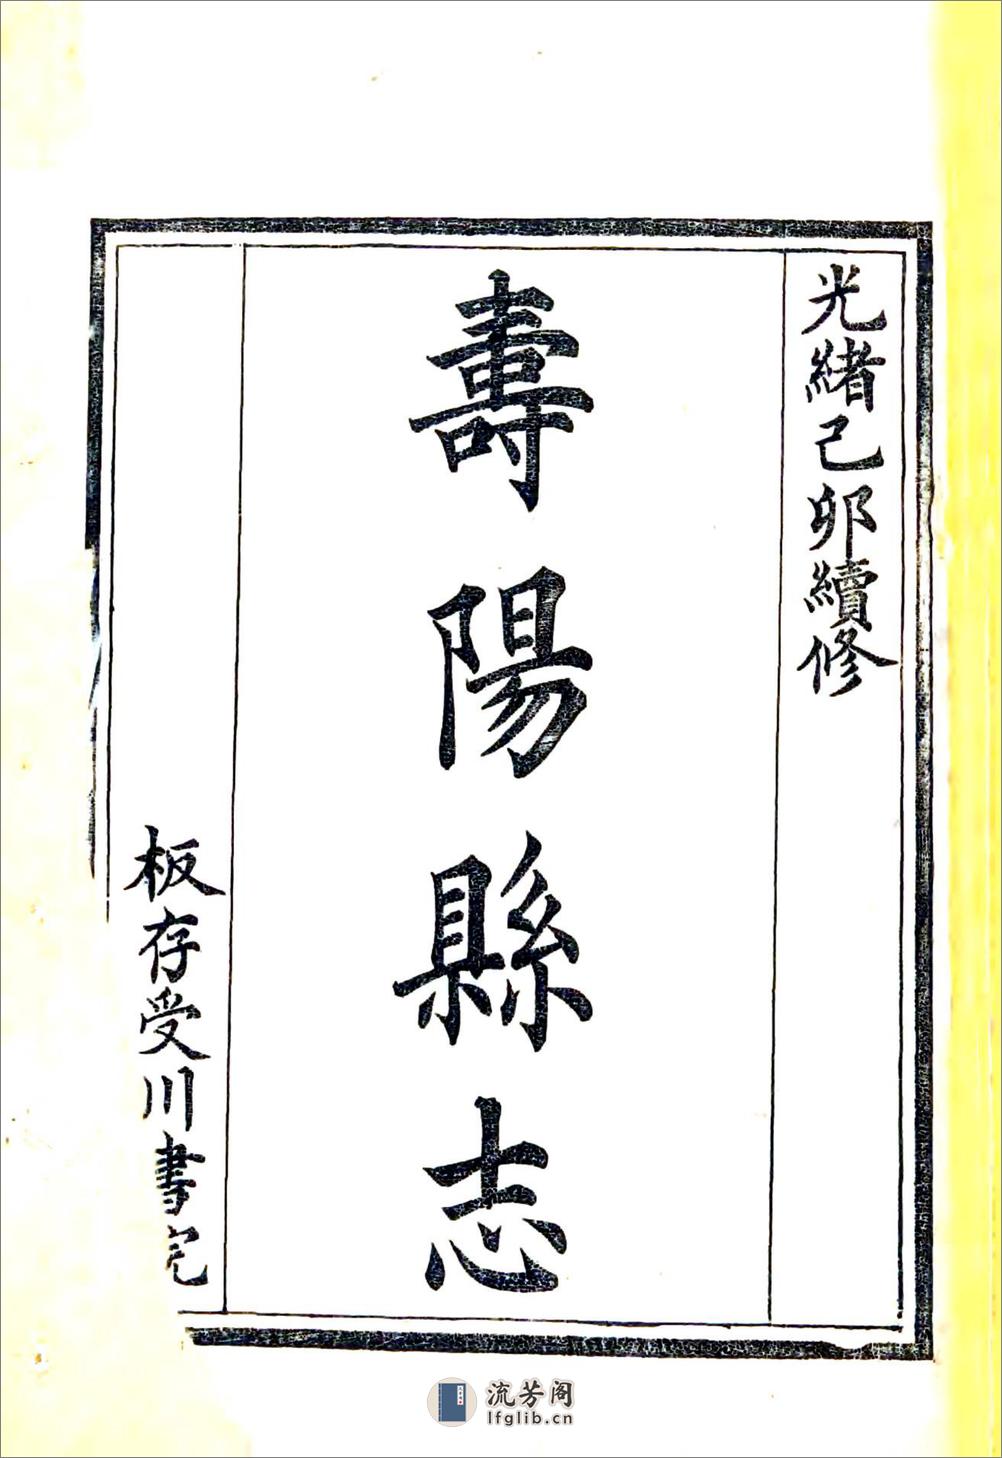 光緒己卯續修
壽陽縣志
板存受川書院
流芳阁
lfglib.cn